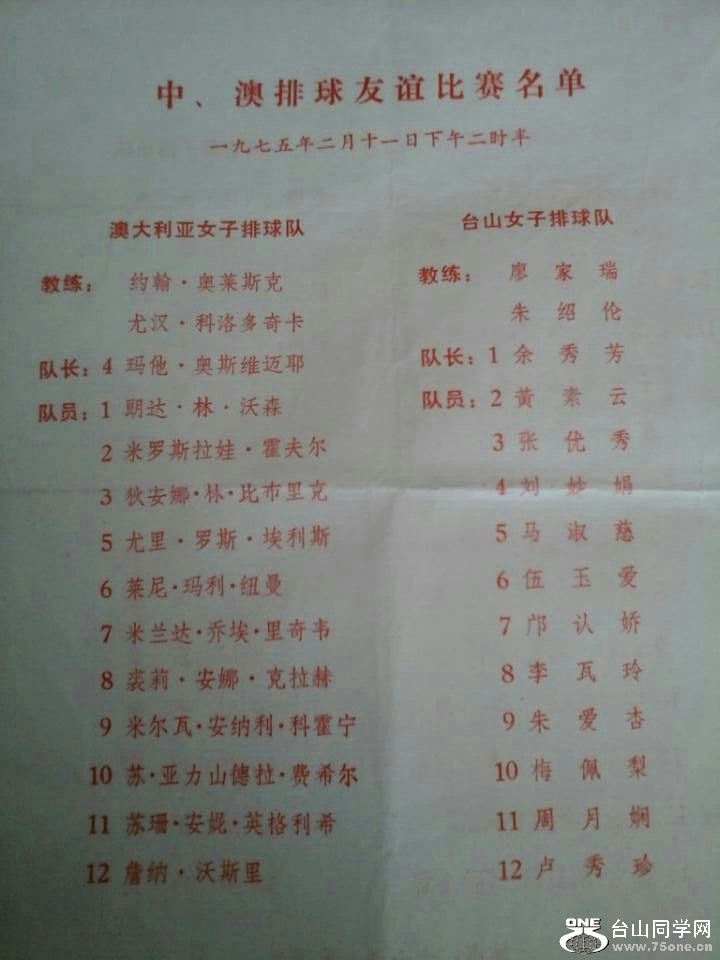 中、澳排球友谊比赛名单
一九七五年二月十一日下午二时半
澳大利亚女子排球队
教练：约翰·奥莱斯克
尤汉·科洛多奇卡
队长：4 玛他·奥斯维迈耶
队员：1 明达·林·沃森
2 米罗斯拉娃·霍夫尔
3 狄安娜·林·比布里克
5 尤里·罗斯·埃利斯
6 莱尼·玛利·纽曼
7 米兰达·乔埃·里奇韦
8 裘莉·安娜·克拉赫
9 米尔瓦·安纳利·科霍宁
10 苏·亚力山德拉·费希尔
11 苏珊·安妮·英格利希
12 詹纳·沃斯里
台山女子排球队
教练：廖家瑞
朱绍伦
队长：1 余秀芳
队员：2 黄素云
3 张优秀
4 刘妙娟
5 马淑慈
6 伍玉爱
7 邝认娇
8 李瓦玲
9 朱爱杏
10 梅佩梨
11 周月娴
12 卢秀珍
ONE 台山同学网
www.75one.com